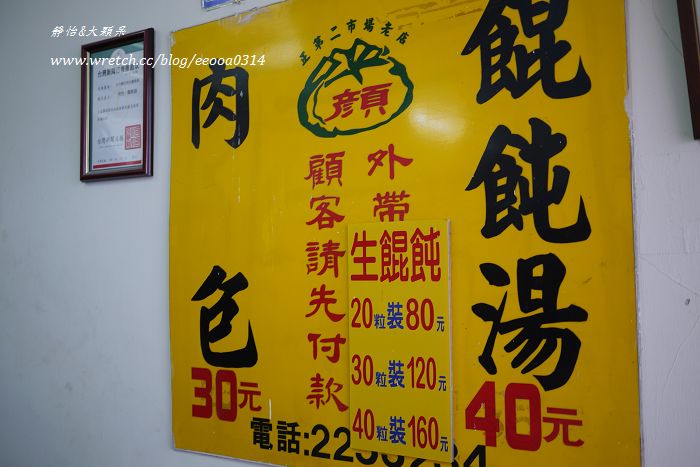 靜怡&大顆呆
www.wretch.cc/blog/eeooa0314
正第二市場老店
顏
餛飩湯
40元
外帶
顧客請先付款
肉包
30元
生餛飩
20粒裝80元
30粒裝120元
40粒裝160元
電話:22